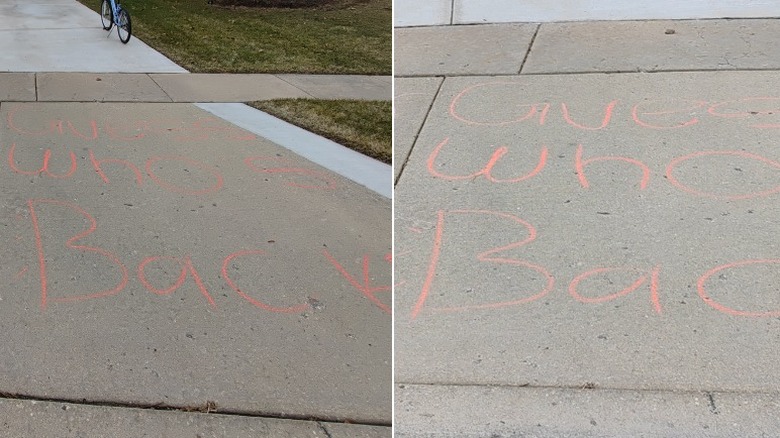 Guess
whos
Back
Gues
who
Bac